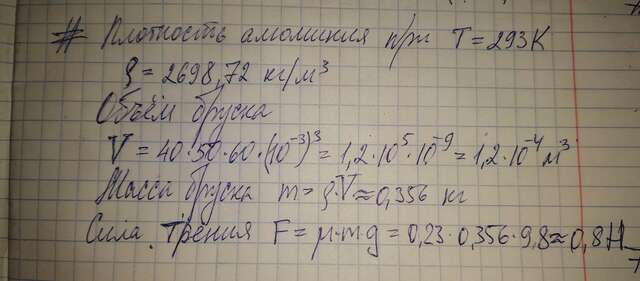 # Плотность алюминия при T = 293K
ρ = 2698,72 кг/м³
Объём бруска
V = 40·50·60·(10⁻³)³ = 1,2·10⁵·10⁻⁹ = 1,2·10⁻⁴ м³
Масса бруска m = ρ·V ≈ 0,356 кг
Сила трения F = μ·mg = 0,23·0,356·9,8 ≈ 0,8Н